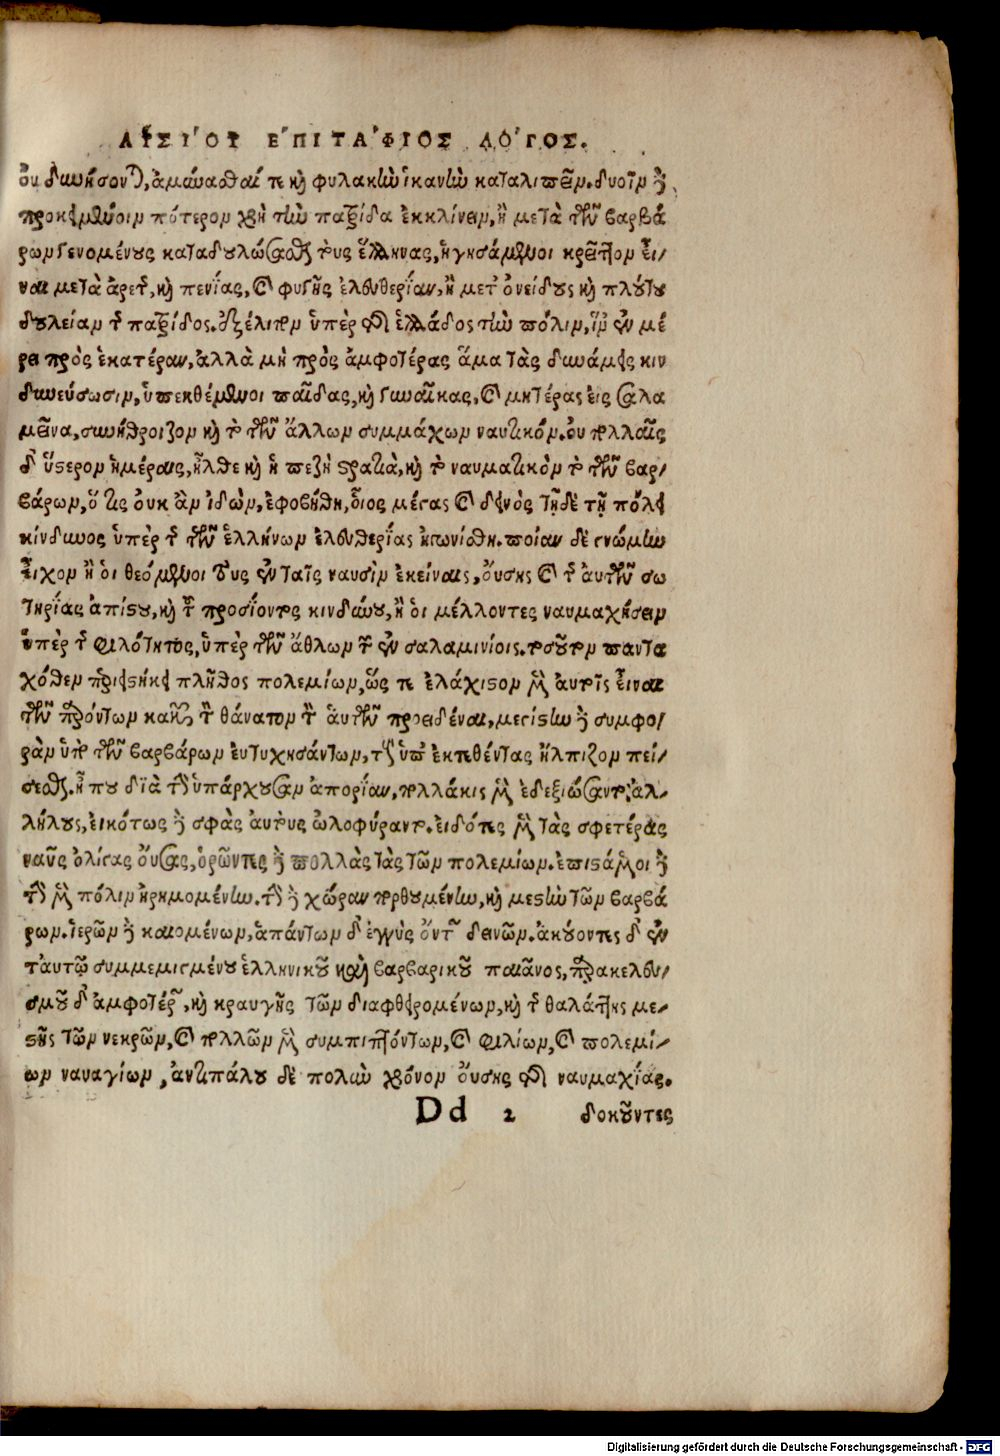 ΛΥΣΙΟΥ ΕΠΙΤΑΦΙΟΣ ΛΟΓΟΣ.
οὐ δυνήσονται, ἀμύνασθαί τε καὶ φυλακὴν ἱκανὴν καταλιπεῖν. δυοῖν δὲ
προκειμένοιν πότερον χρὴ τὴν πατρίδα ἐκκλίνειν, ἢ μετὰ τῶν βαρβά
ρων γενομένους καταδουλώσασθαι τοὺς ἕλληνας, ἡγησάμενοι κρεῖττον εἶ-
ναι μετὰ ἀρετῆς, καὶ πενίας, καὶ φυγῆς ἐλευθερίαν, ἢ μετ' ὀνείδους καὶ πλούτου
δουλείαν τῆς πατρίδος. ἐξέλιπον ὑπὲρ τῆς ἑλλάδος τὴν πόλιν, ἵν' ἐν μέ
ρει πρὸς ἑκατέραν, ἀλλὰ μὴ πρὸς ἀμφοτέρας ἅμα τὰς δυνάμεις κιν
δυνεύσωσιν, ὑπεκθέμενοι παῖδας, καὶ γυναῖκας, καὶ μητέρας εἰς σαλα
μῖνα, συνήθροιζον καὶ τὸ τῶν ἄλλων συμμάχων ναυτικόν. οὐ πολλαῖς
δ' ὕστερον ἡμέραις, ἦλθε καὶ ἡ πεζὴ στρατιὰ, καὶ τὸ ναυτικὸν τὸ τῶν βαρ-
βάρων, ὅ τις οὐκ ἂν ἰδὼν, ἐφοβήθη, οἷος μέγας καὶ δεινὸς τῇδε τῇ πόλει
κίνδυνος ὑπὲρ τῆς τῶν ἑλλήνων ἐλευθερίας ἠγωνίσθη. ποίαν δὲ γνώμην
εἶχον ἢ οἱ θεόμενοι τοὺς ἐν ταῖς ναυσὶν ἐκείναις, οὔσης καὶ τῆς αὐτῶν σω
τηρίας ἀπίστου, καὶ τοῦ προσιόντος κινδύνου, ἢ οἱ μέλλοντες ναυμαχήσειν
ὑπὲρ τῆς φιλότητος, ὑπὲρ τῶν ἄθλων τῶν ἐν σαλαμινίοις. τοσοῦτον πάντα
χόθεν περιειστήκει πλῆθος πολεμίων, ὥς τε ἐλάχιστον μὲν αὐτοῖς εἶναι
τῶν παρόντων κακῶν τὸν θάνατον τὸν αὑτῶν προειδέναι, μεγίστην δὲ συμφο-
ρὰν ὑπὸ τῶν βαρβάρων εὐτυχησάντων, τοὺς ὑπ' ἐκτεθέντας ἤλπιζον πεί-
σεσθαι. ἦ που διὰ τὴν ὑπάρχουσαν ἀπορίαν, πολλάκις μὲν ἐδεξιώσαντο ἀλ-
λήλους, εἰκότως δὲ σφᾶς αὐτοὺς ὠλοφύραντο. εἰδότες μὲν τὰς σφετέρας
ναῦς ὀλίγας οὔσας, ὁρῶντες δὲ πολλὰς τὰς τῶν πολεμίων. ἐπιστάμενοι δὲ
τὴν μὲν πόλιν ἠρημομένην. τὴν δὲ χώραν πορθουμένην, καὶ μεστὴν τῶν βαρβά
ρων. ἱερῶν δὲ καιομένων, ἁπάντων δ' ἐγγὺς ὄντων δεινῶν. ἀκούοντες δ' ἐν
ταυτῷ συμμεμιγμένου ἑλληνικοῦ καὶ βαρβαρικοῦ παιᾶνος, παρακελευ-
σμοῦ δ' ἀμφοτέρων, καὶ κραυγῆς τῶν διαφθειρομένων, καὶ τῆς θαλάττης με-
στῆς τῶν νεκρῶν, καὶ πολλῶν μὲν συμπιπτόντων, καὶ φιλίων, καὶ πολεμί-
ων ναυαγίων, ἀντιπάλου δὲ πολὺν χρόνον οὔσης τῆς ναυμαχίας.
Dd 2 δοκοῦντες
Digitalisierung gefördert durch die Deutsche Forschungsgemeinschaft - DFG